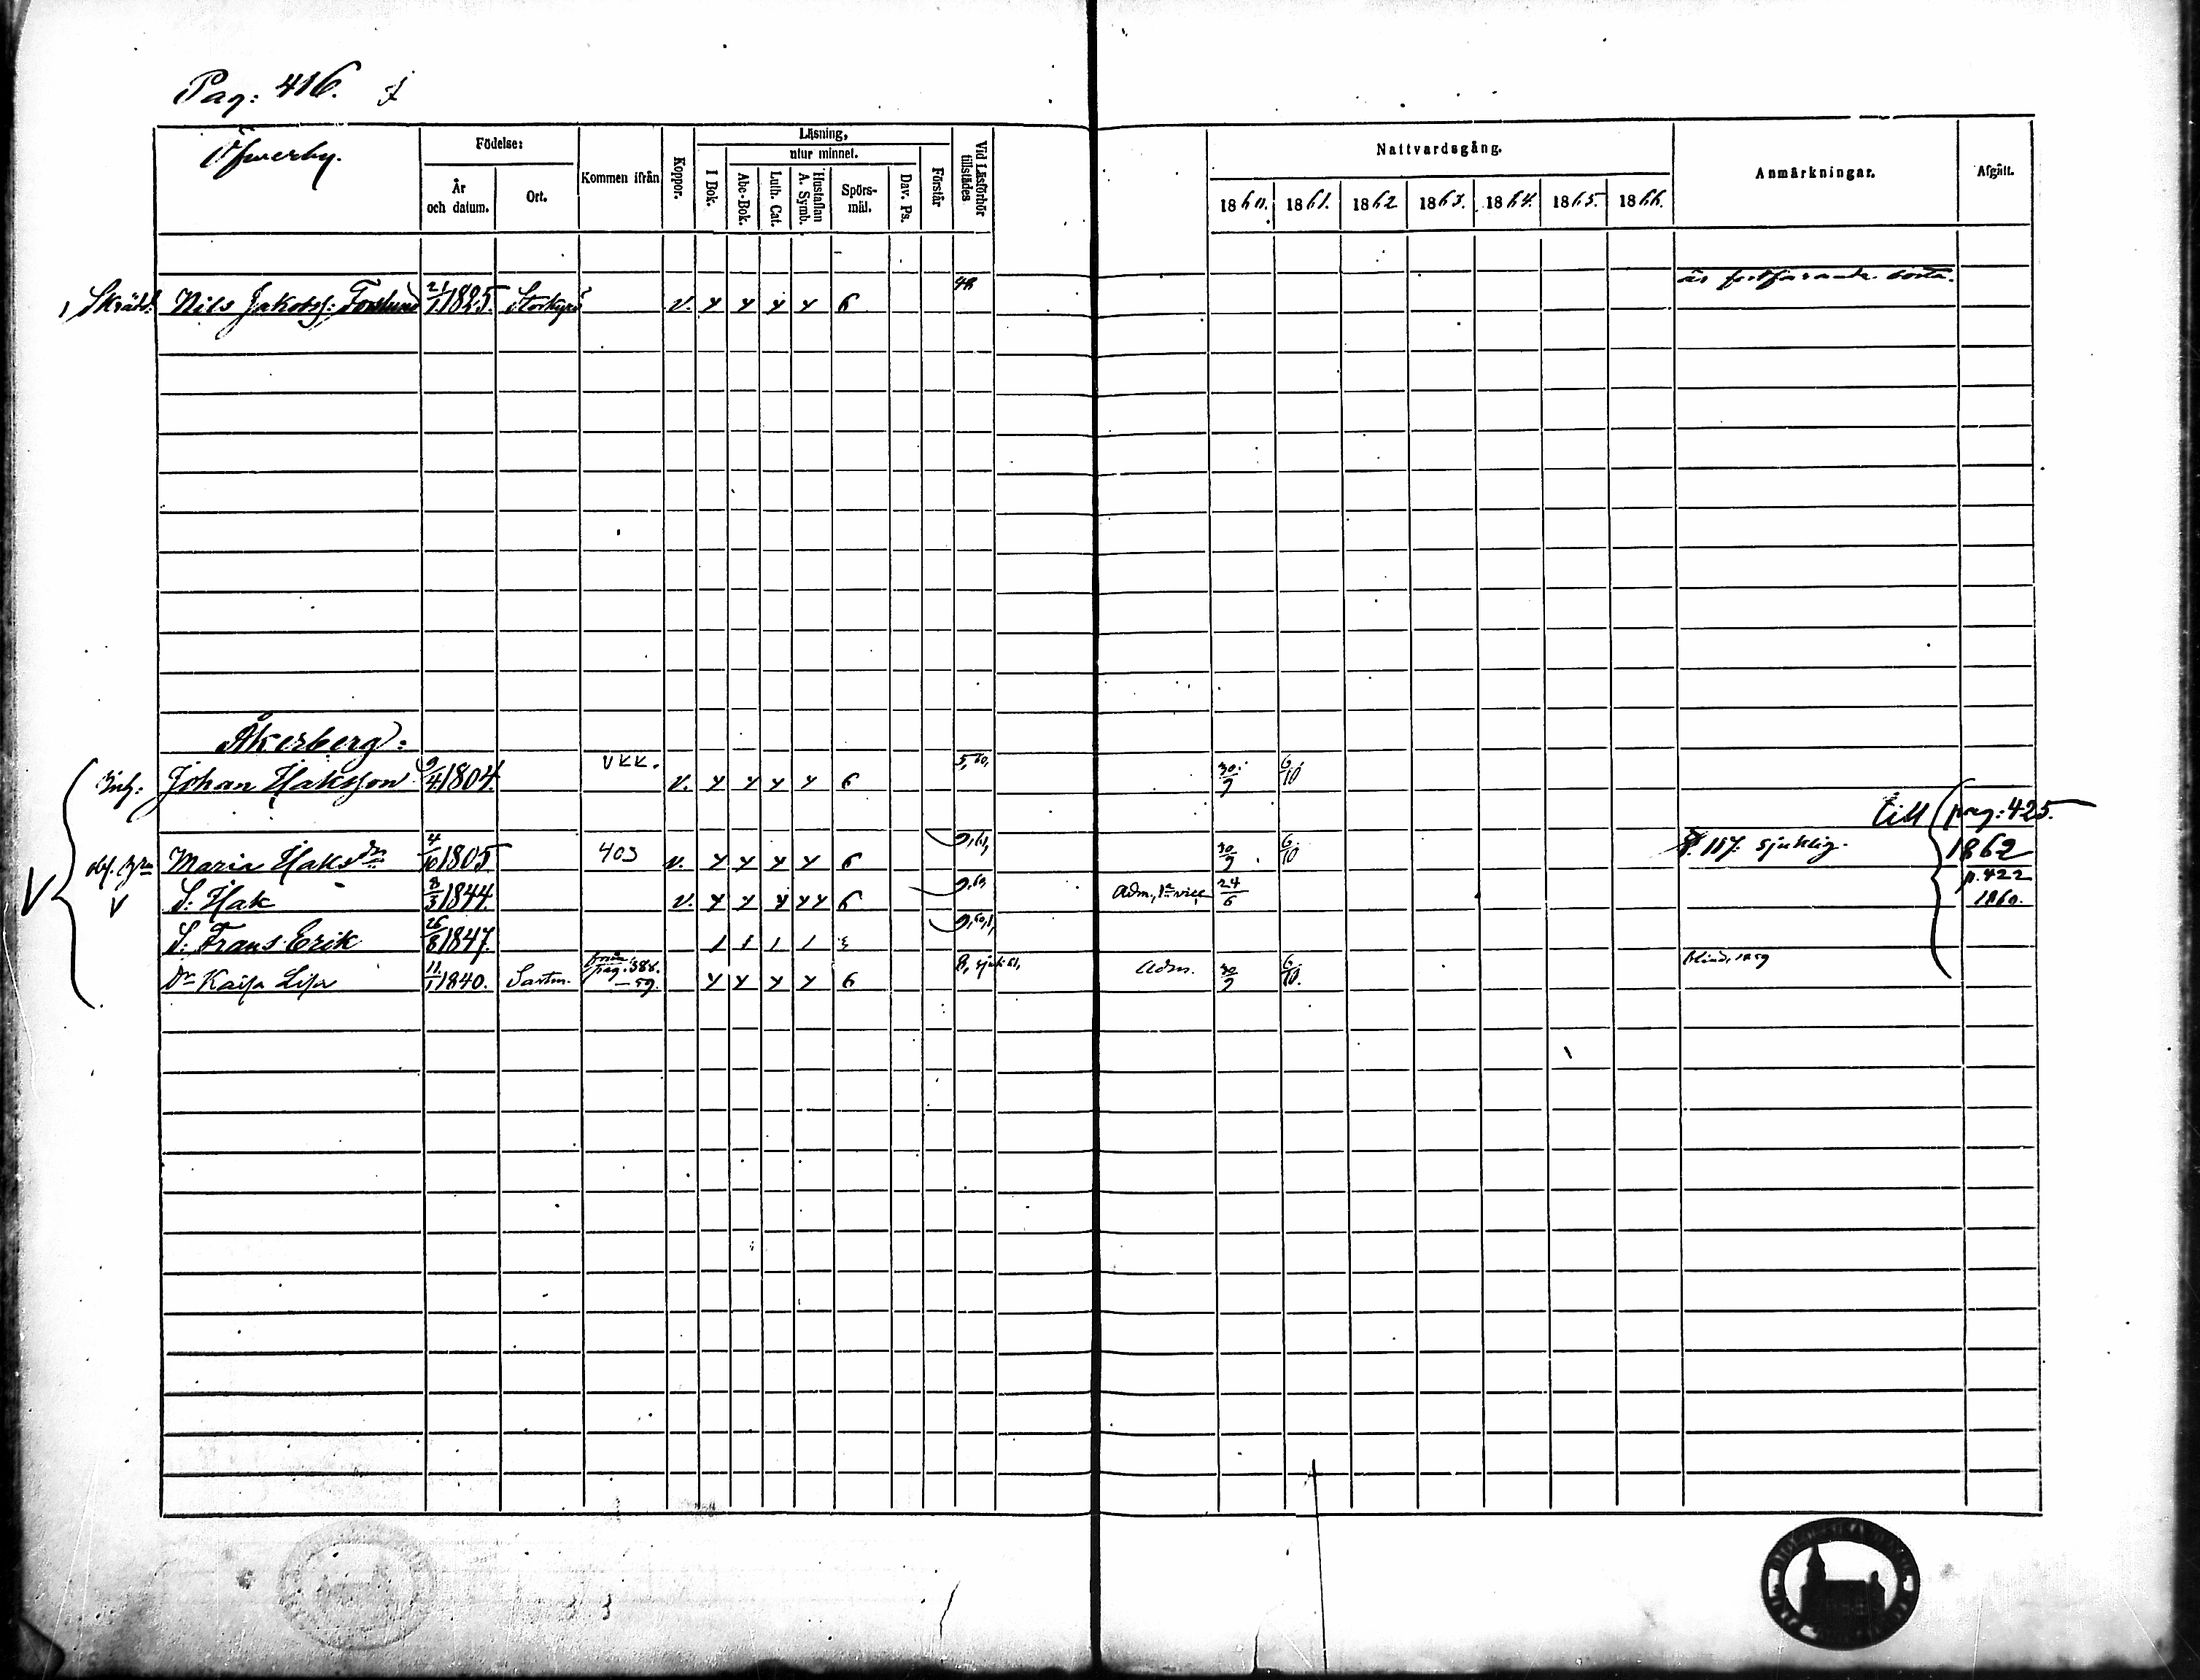 Pag: 416.
Öfwerby.
Födelse:
År och datum.
Ort.
Kommen ifrån
Koppor.
Läsning,
utur minnet.
I Bok.
Abc-Bok.
Luth. Cat.
Hustaflan A. Symb.
Spörs-mål.
Dav. Ps.
Förstår
Vid Läsförhör tillstädes
Nattvardsgång.
1860. 1861. 1862 1863. 1864. 1865. 1866.
Anmärkningar.
Afgått.
är fortfarande borta.
Skrädd: Nils Jakobss: Forslund 21/1 1825. Storkyro v. y y y y 6 48
Åkerberg:
Inh: Johan Haksson 9/4 1804. VKK. v. y y y y 6 5,60, 30/9 6/10
till pag: 425.
Maria Haksdr 4/10 1805 403 v. y y y y 6 9,61, 30/9 6/10 §. 117. sjuklig. 1862
S: Hak 8/3 1844. v. y y y yy 6 9,61 Adm., 24/6 p. 422 1860.
S: Frans Erik 26/8 1847. 1 1 1 1 3 9,60,1,
Dr Kaisa Lisa 11/1 1840. Sastm. från pag: 388. —59. y y y y 6 8, sjuk 61, Adm. 30/9 6/10. blind, 1859